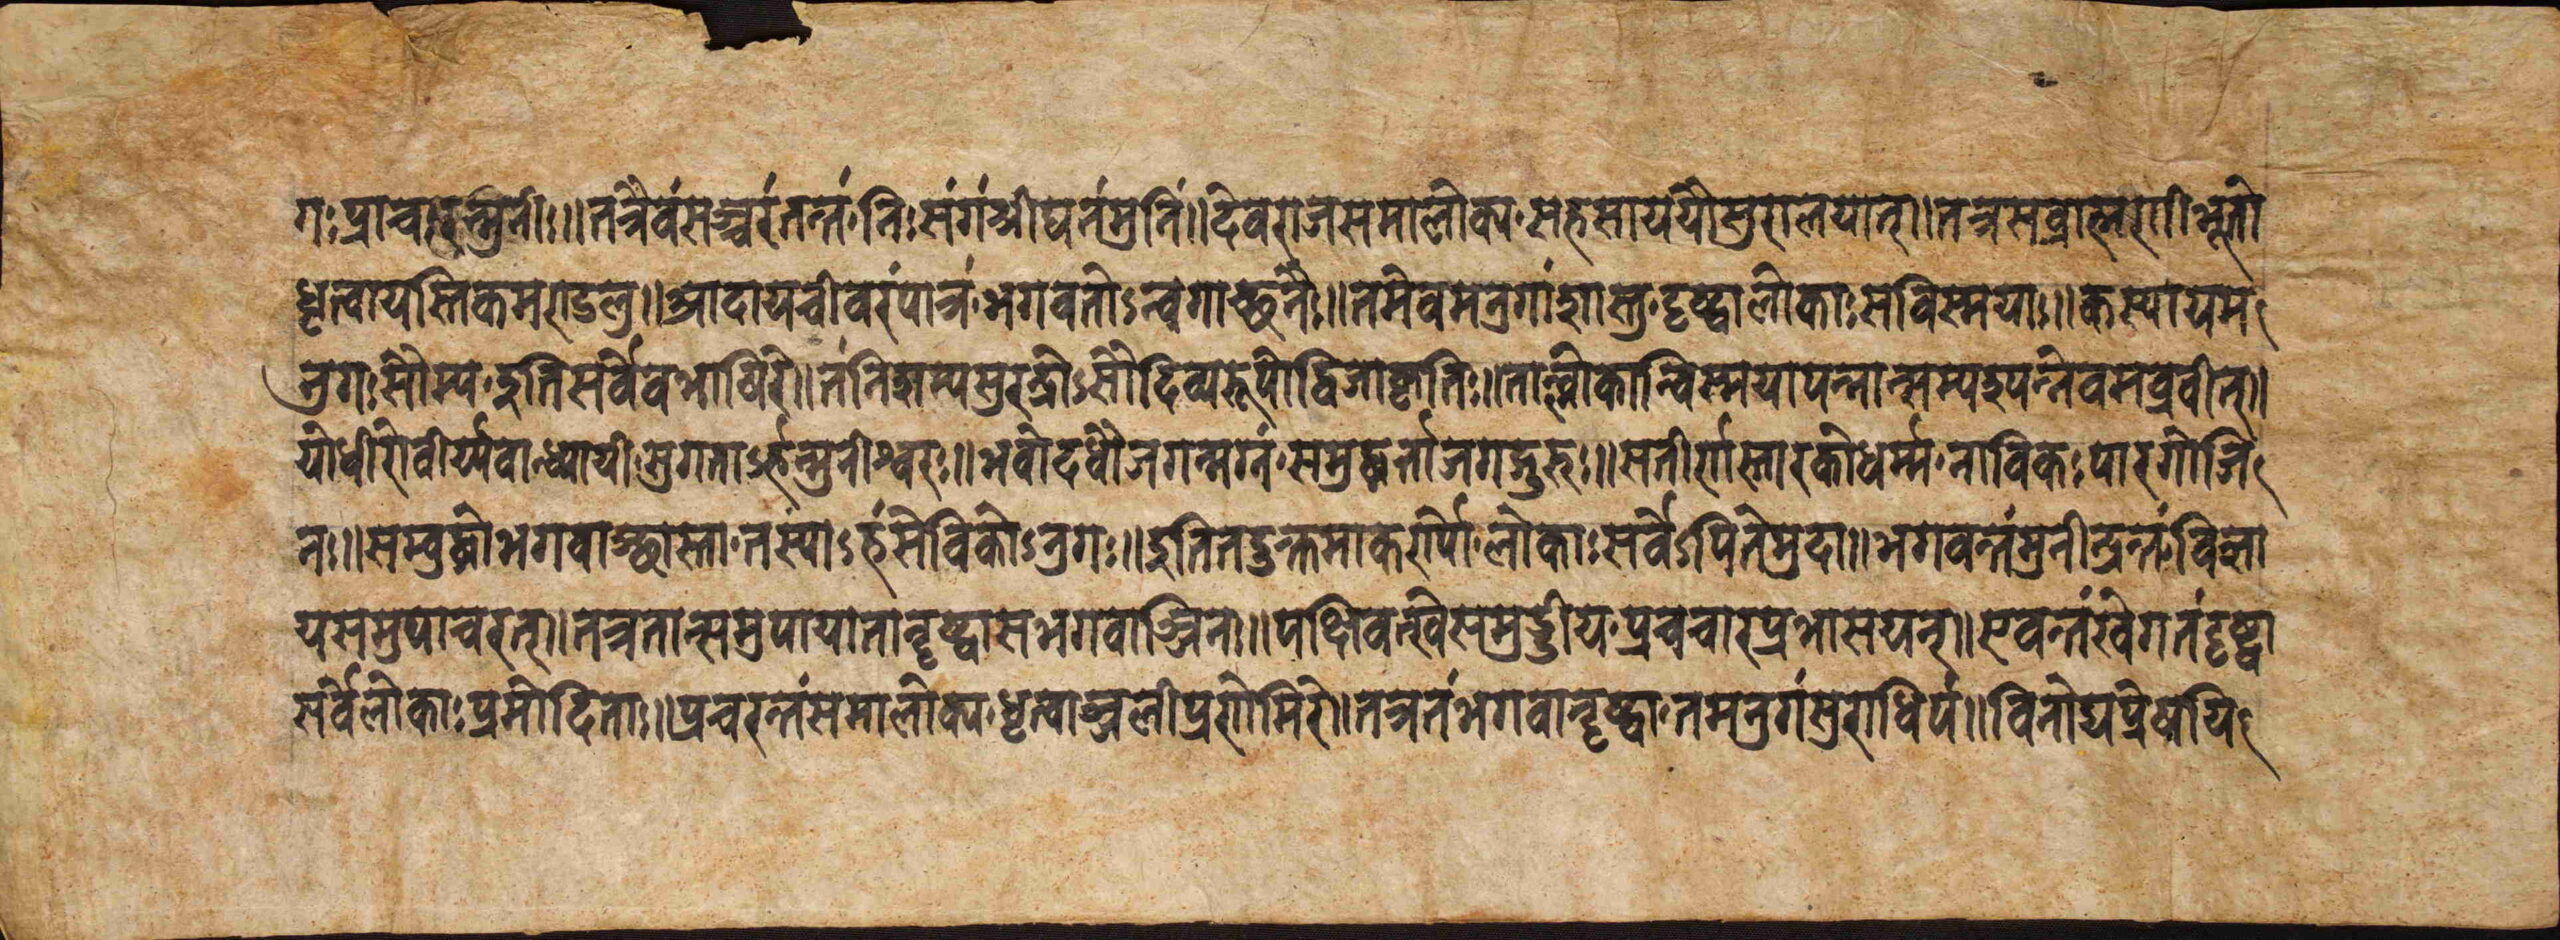 गः प्राचरन्मुनीः॥ तत्रैवं सञ्चरंतन्तं निःसंगं श्रीघनं मुनिं॥ देवराज समालोक्य सहसाययौ सुरालयात्॥ तत्र स ब्राह्मणो भूतो
धृत्वा यस्तिकमण्डलु॥ आदाय चीवरं पात्रं भगवतोऽन्वगाच्छनैः॥ तमेवमनुगं शास्तु दृष्ट्वा लोकाः सविस्मयाः॥ कस्यायम
नुगः सौम्य इति सर्वे वभाषिरे॥ तं निशम्य सुरेन्द्रोऽसौ दिव्यरूपो द्विजाकृतिः॥ तांल्लोकान्विस्मयापन्नान्सम्पश्यन्नेवमब्रवीत्॥
यो धीरो वीर्य्यवान्ध्यायी सुगतोऽर्हन्मुनीश्वरः॥ भवोदधौ जगन्मग्नं समुद्धर्ता जगद्गुरुः॥ स तीर्णस्तारको धर्म्म नाविकः पारगो जि
नः॥ सम्बुद्धो भगवाञ्छास्ता तस्याऽहं सेवकोऽनुगः॥ इति तदुक्तमाकर्ण्य लोकाः सर्वेऽपि ते मुदा॥ भगवन्तं मुनीन्द्रन्तं विलो
य समुपाचरत्॥ तत्र तान्समुपायातान्दृष्ट्वा स भगवाञ्जिनः॥ पक्षिवत्खे समुड्डीय प्रचचार प्रभासयन्॥ एवन्तं खे गतं दृष्ट्वा
सर्वे लोकाः प्रमोदिताः॥ प्रचरन्तं समालोक्य धृत्वाञ्जली प्रणेमिरे॥ तत्र तं भगवान्दृष्ट्वा तमनुगं सुराधिपं॥ विनोद्य प्रेषयि